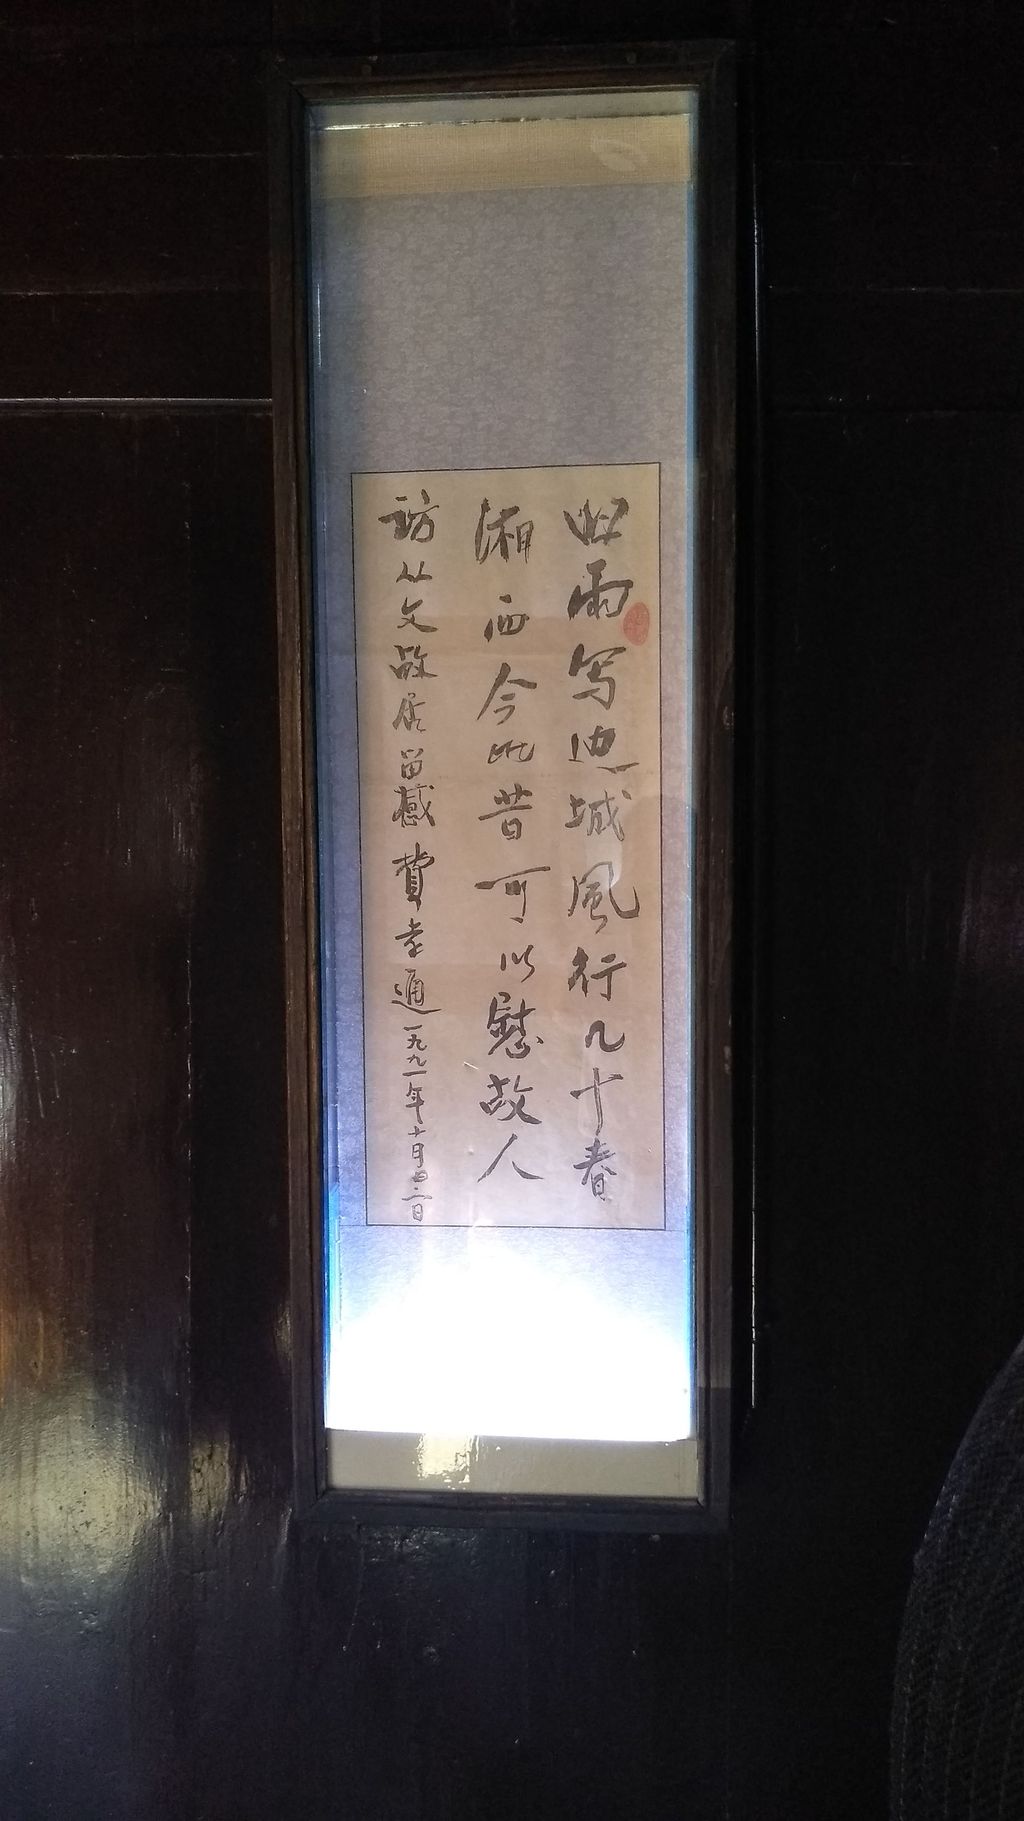 旧雨写边城風行几十春
湘西今比昔可以慰故人
访从文故居留感 費孝通 一九九一年十月日